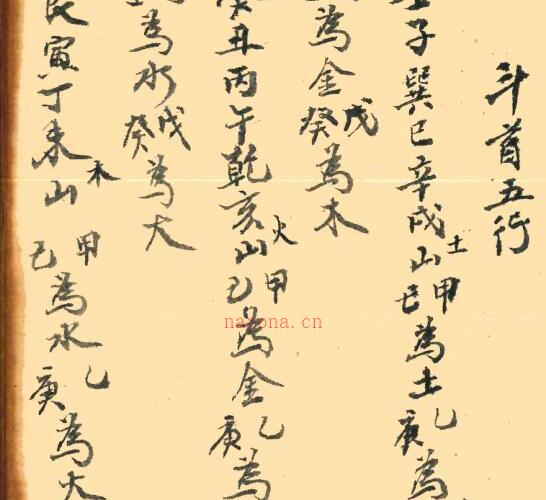 斗首五行
子巽巳辛戌山土甲己為土乙庚為
為金戊癸為木
丑丙午乾亥山火甲己為金乙庚為
為水戊癸為火
艮寅丁未山木甲己為水乙庚為火
nayona.cn